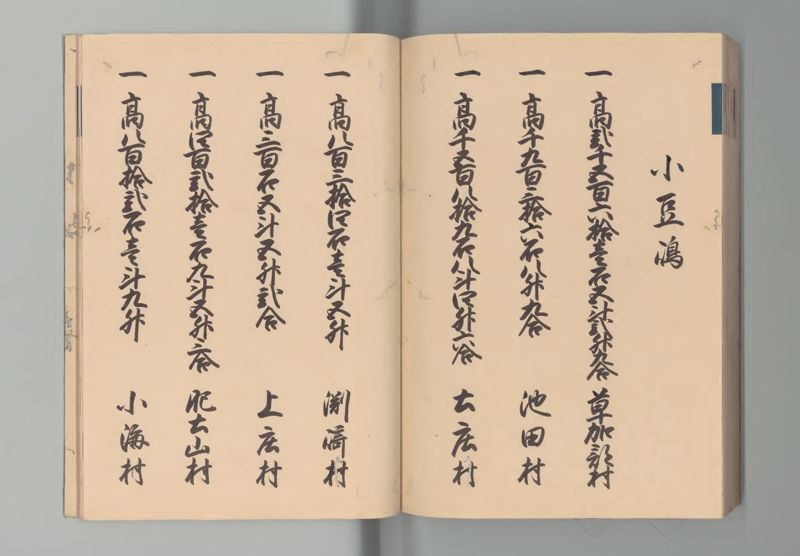 小豆嶋
一 高弐千五百六拾壱石五斗弐升九合 草加部村
一 高千九百三拾六石八升九合 池田村
一 高千五百八拾九石八斗四升六合 土庄村
一 高八百三拾四石壱斗五升 渕崎村
一 高三百石五斗五升弐合 上庄村
一 高四百弐拾壱石九斗五升三合 肥土山村
一 高八百拾弐石壱斗九升 小海村